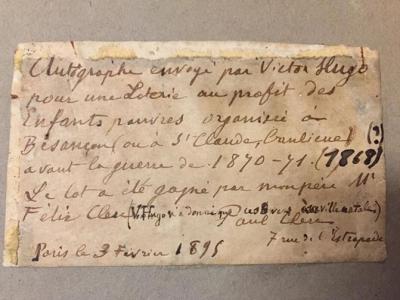 Autographe envoyé par Victor Hugo
pour une Loterie au profit des
Enfants pauvres organisée à
Besançon (ou à St Claude, banlieue) (?)
avant la guerre de 1870-71. (1868)
Le lot a été gagné par mon père Mr
Félix Clerc (V. Hugo a donné que ses villenatale)
Paul Clerc
Paris le 3 Février 1895
7 rue de l'Estrapade